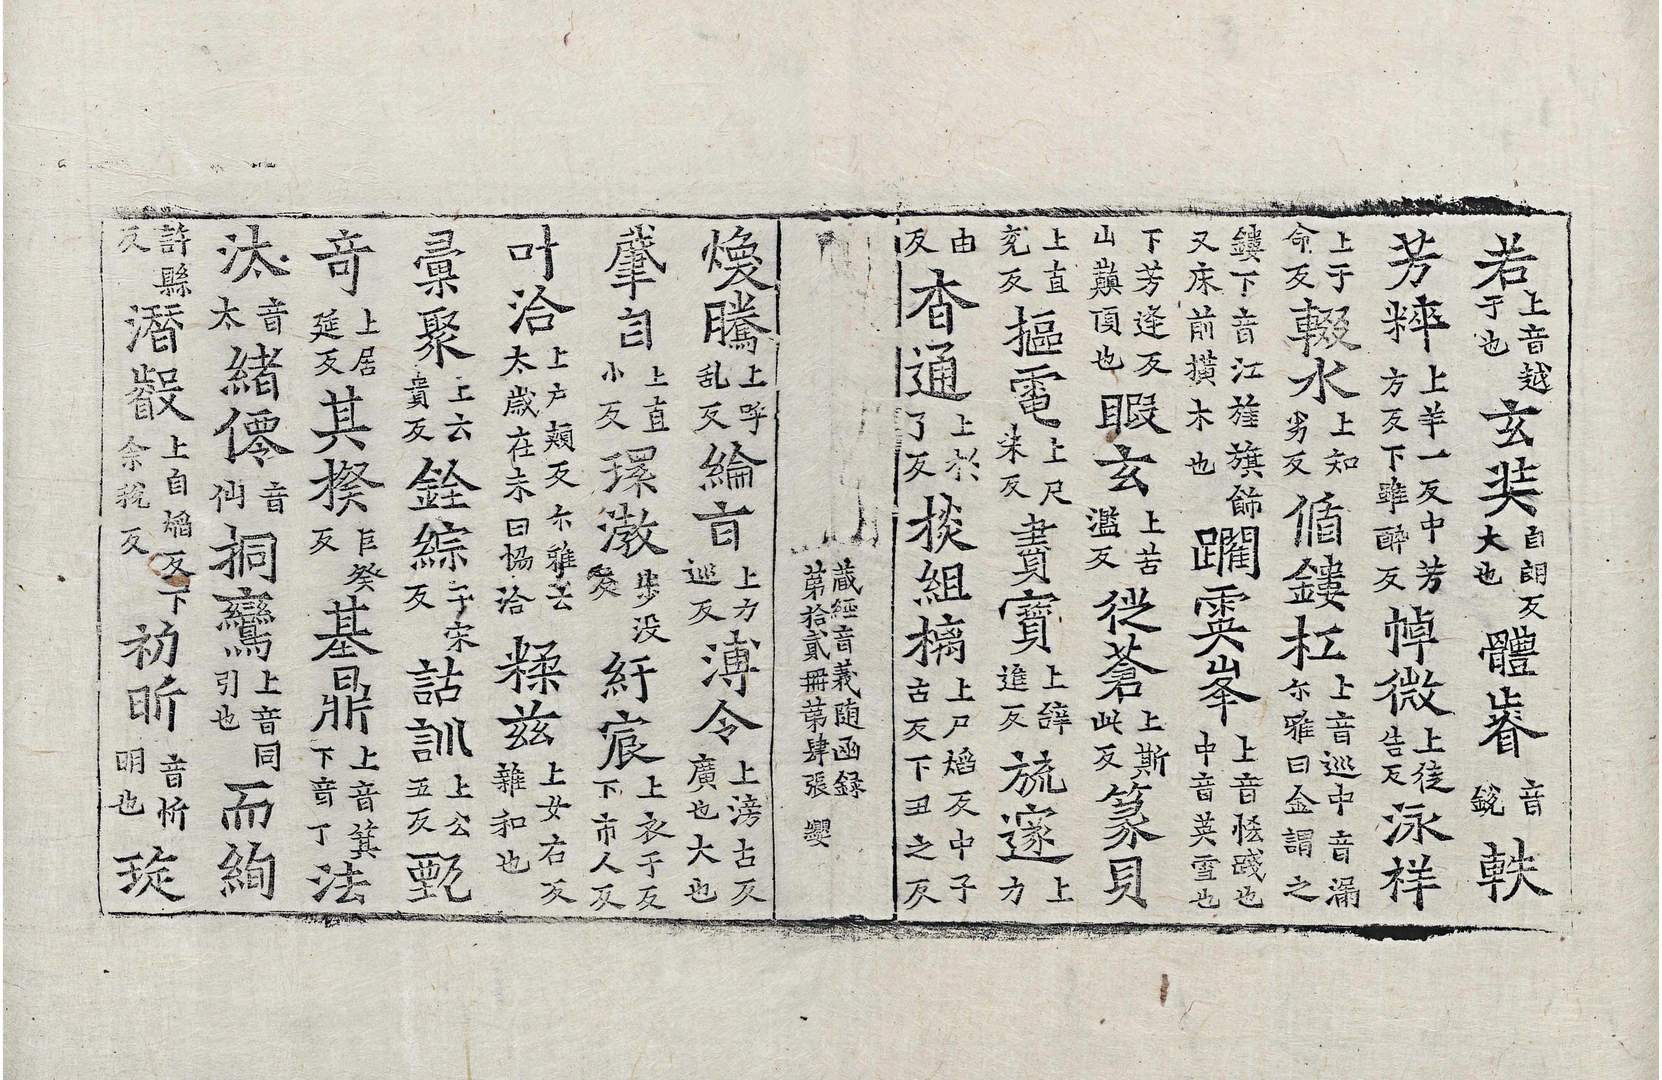 若上音越于也玄奘自朗反大也體睿音銳軼
芳粹上羊一反中芳方反下雖醉反悼微上徒告反泳样
上于命反輟水上知劣反偱鏤杠上音巡中音漏尓雅曰金謂之
鏤下音江旌旗飾又床前橫木也躙霙峯上音悋踐也中音英雪也
下芳逢反山巔頂也暇玄上苦濫反從蒼上斯此反篆貝
上直兖反摳電上尺朱反賮寶上辝進反旒邃上力
由反杳通上於了反掞組摛上尸焰反中子古反下丑之反
藏經音義随函録
第拾貳冊第肆張 纓
煥騰上呼乱反綸言上力巡反溥令上滂古反廣也大也
肇自上直小反環漖步没反紆宸上衣于反下市人反
叶洽上户頰反尓雅云太歳在未曰協洽糅兹上女右反雜和也
彙聚上云貴反銓綜子宋反詁訓上公五反甄
竒上居延反其揆巨癸反基鼎上音箕下音丁法
汰音太緒僊音仙挏鸞上音同引也而絢
許縣反潛叡上自焰反下余稅反礽昕音忻明也琁